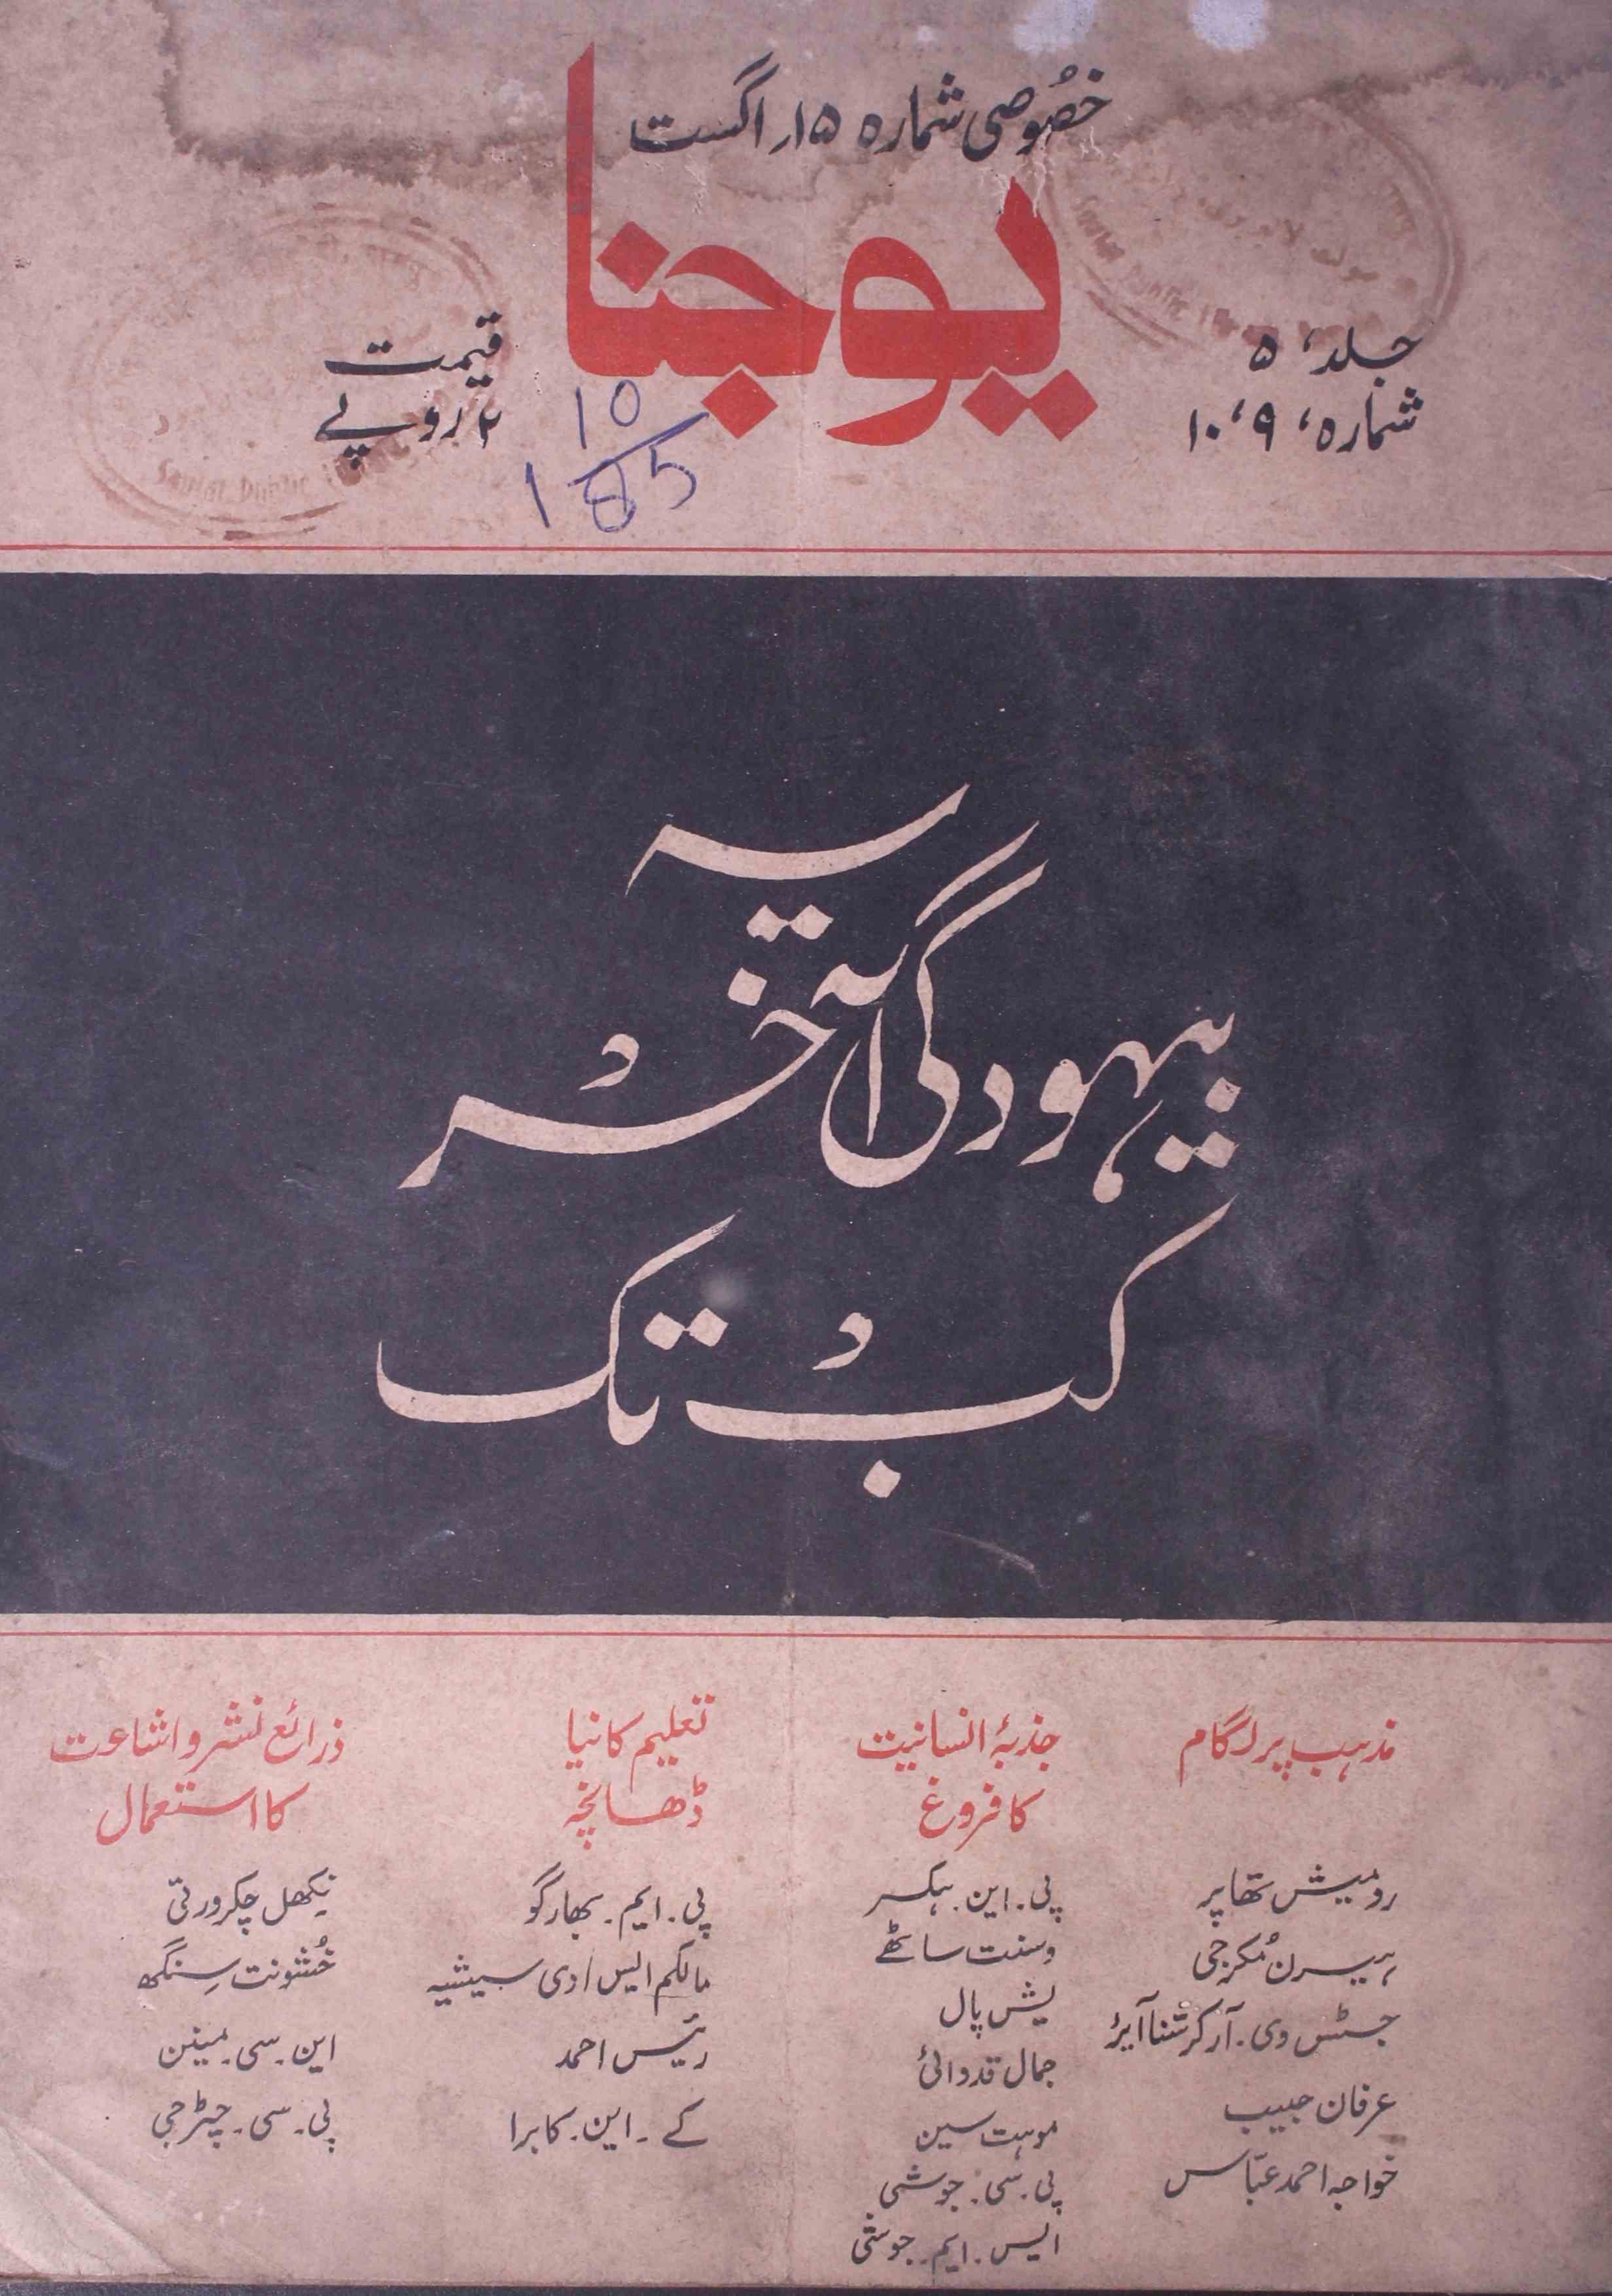 خصُوصی شمارہ ۱۵؍ اگست
یوجنا
جلد، ۵
شمارہ، ۹، ۱۰
قیمت
۲ روپے
10
185
یہ
بیہودگی آخرْ
کبْ تک
مذہب پر لگام
رومیش تھاپر
ہیرن مُکرجی
جسٹس وی. آر کرشنا آیرٔ
عرفان حبیب
خواجہ احمد عبّاس
جذبۂ انسانیت
کا فروغ
پی. این. ہکسر
وسنت ساٹھے
یش پال
جمال قدوائی
موہت سین
پی. سی. جوشی
ایس. ایم. جوشی
تعلیم کا نیا
ڈھانچہ
پی. ایم. بھارگو
مالکم ایس ادی سیشیہ
رئیس احمد
کے. این. کابرا
ذرائع نشر و اشاعت
کا استعمال
نکھل چکرورتی
خُشونت سِنگھ
این. سی. مینن
پی. سی. چٹرجی